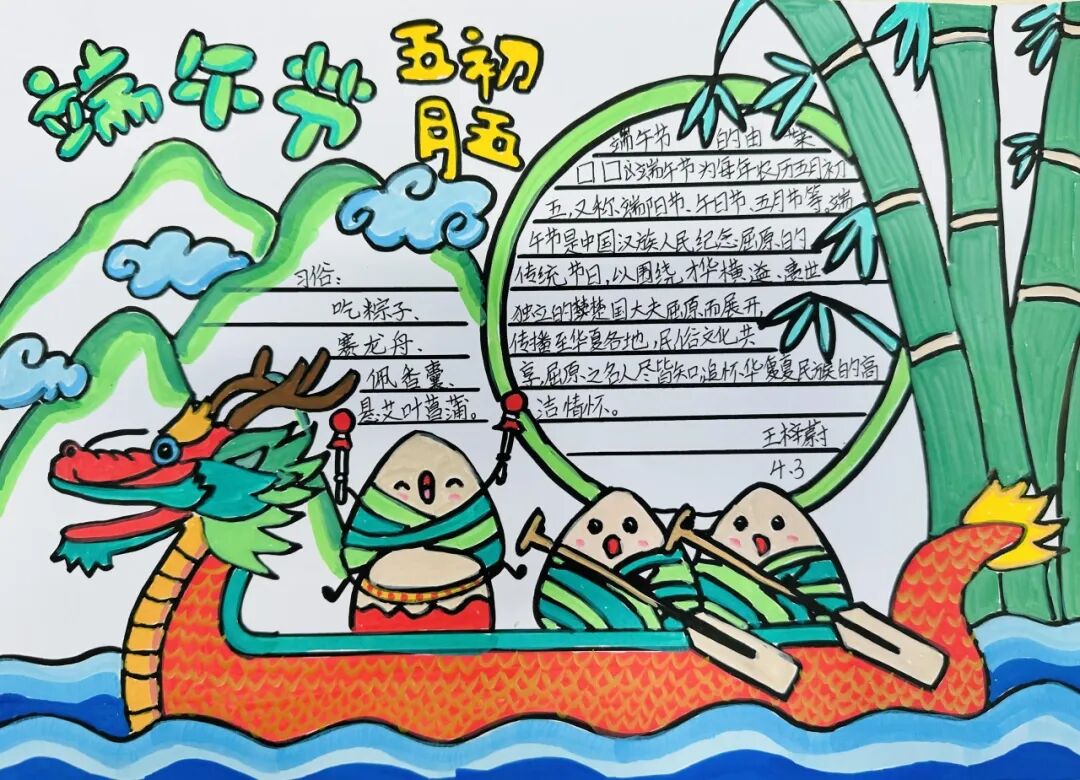 端午节
五初
月五
习俗:
吃粽子、
赛龙舟、
佩香囊、
悬艾叶菖蒲。
端午节 的由
口口端午节为每年农历五月初
五,又称端阳节、午日节、五月节等。端
午节是中国汉族人民纪念屈原的
传统节日,以围绕才华横溢、离世
独立的楚国大夫屈原而展开,
传播至华夏各地,民俗文化共
享,屈原之名人尽皆知,追怀华夏民族的高
洁情怀。
王梓蔚
4.3